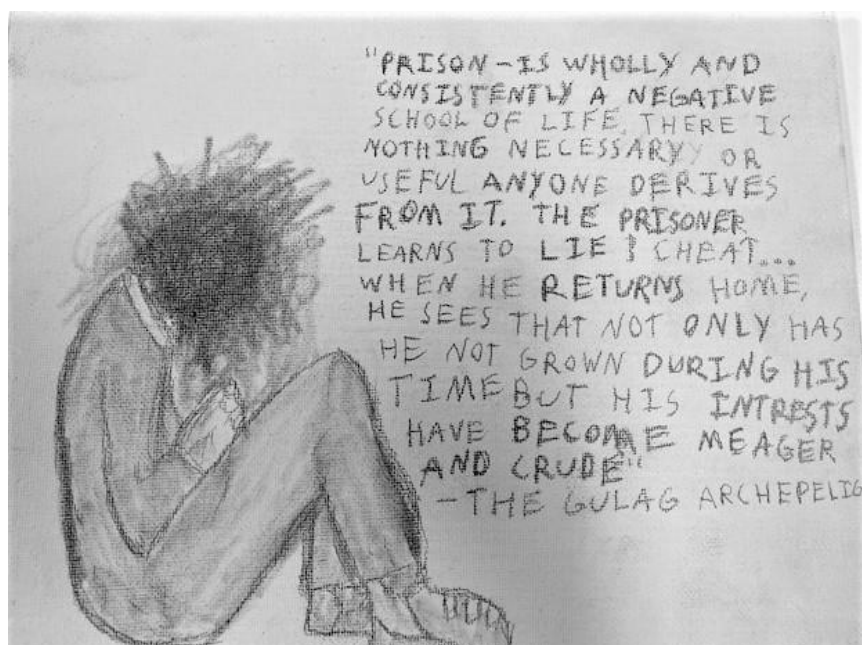 "PRISON - IS WHOLLY AND
CONSISTENTLY A NEGATIVE
SCHOOL OF LIFE. THERE IS
NOTHING NECESSARY OR
USEFUL ANYONE DERIVES
FROM IT. THE PRISONER
LEARNS TO LIE & CHEAT...
WHEN HE RETURNS HOME,
HE SEES THAT NOT ONLY HAS
HE NOT GROWN DURING HIS
TIME BUT HIS INTRESTS
HAVE BECOME MEAGER
AND CRUDE"
- THE GULAG ARCHEPELIG